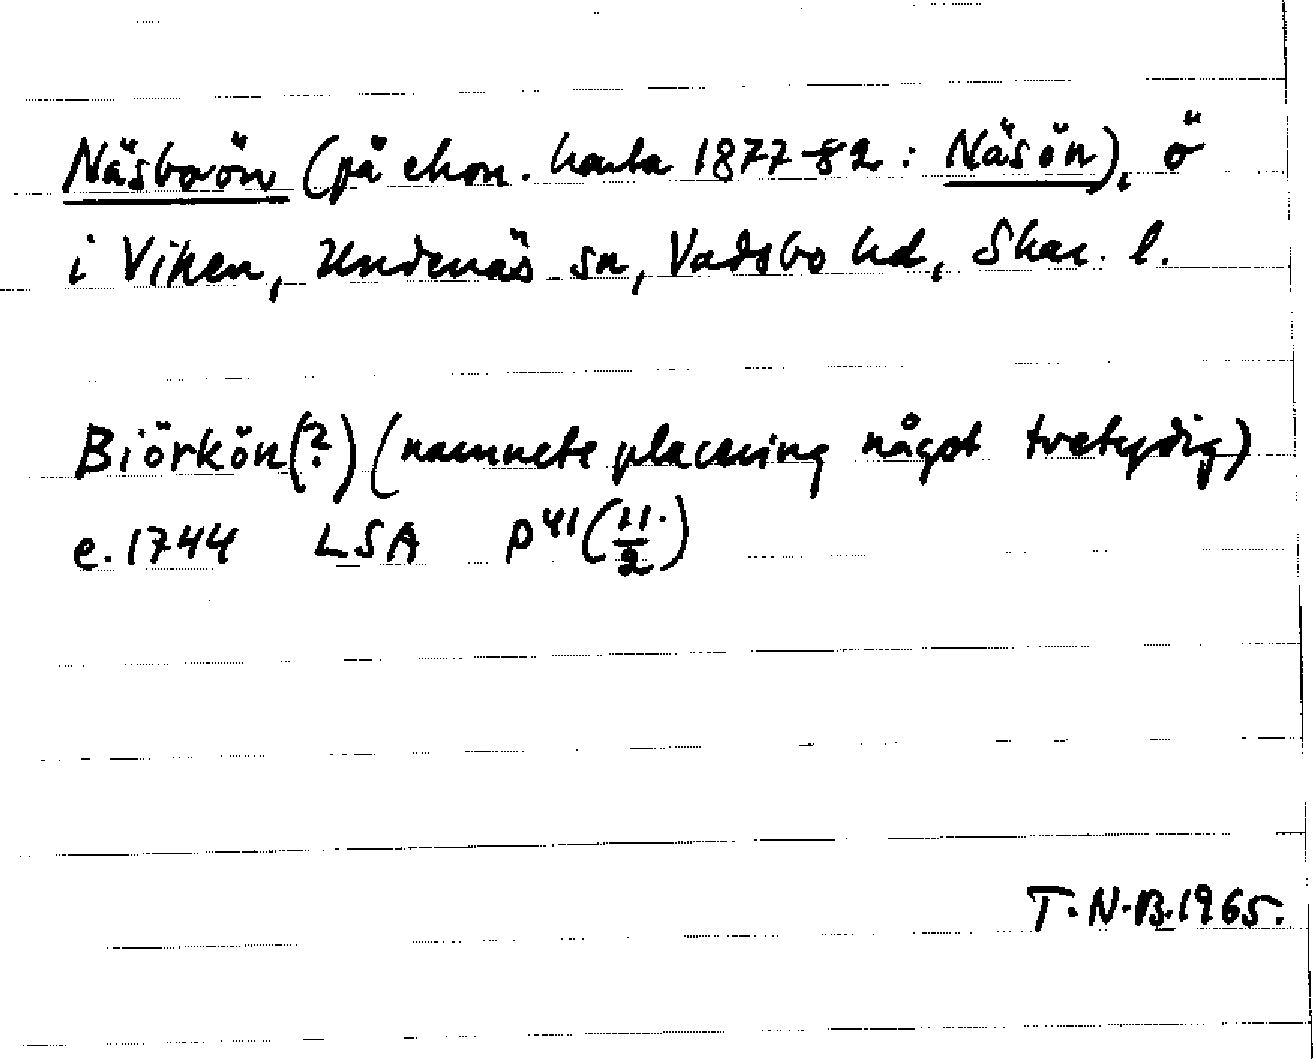 Näsboön (på ekon. karta 1877-82: Näsön), ö
i Viken, Undenäs sn, Vadsbo hd, Skar. l.
Biörkön(?) (namnets placering något tvetydig)
e. 1744 LSA P 41 (11/2)
T.N.B. 1965.